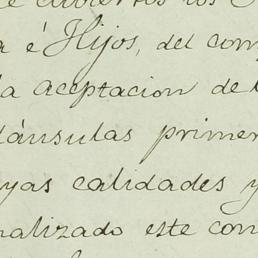 a é Hijos, del con
la aceptacion de l
láusulas primer
yas calidades y
nalizado este con